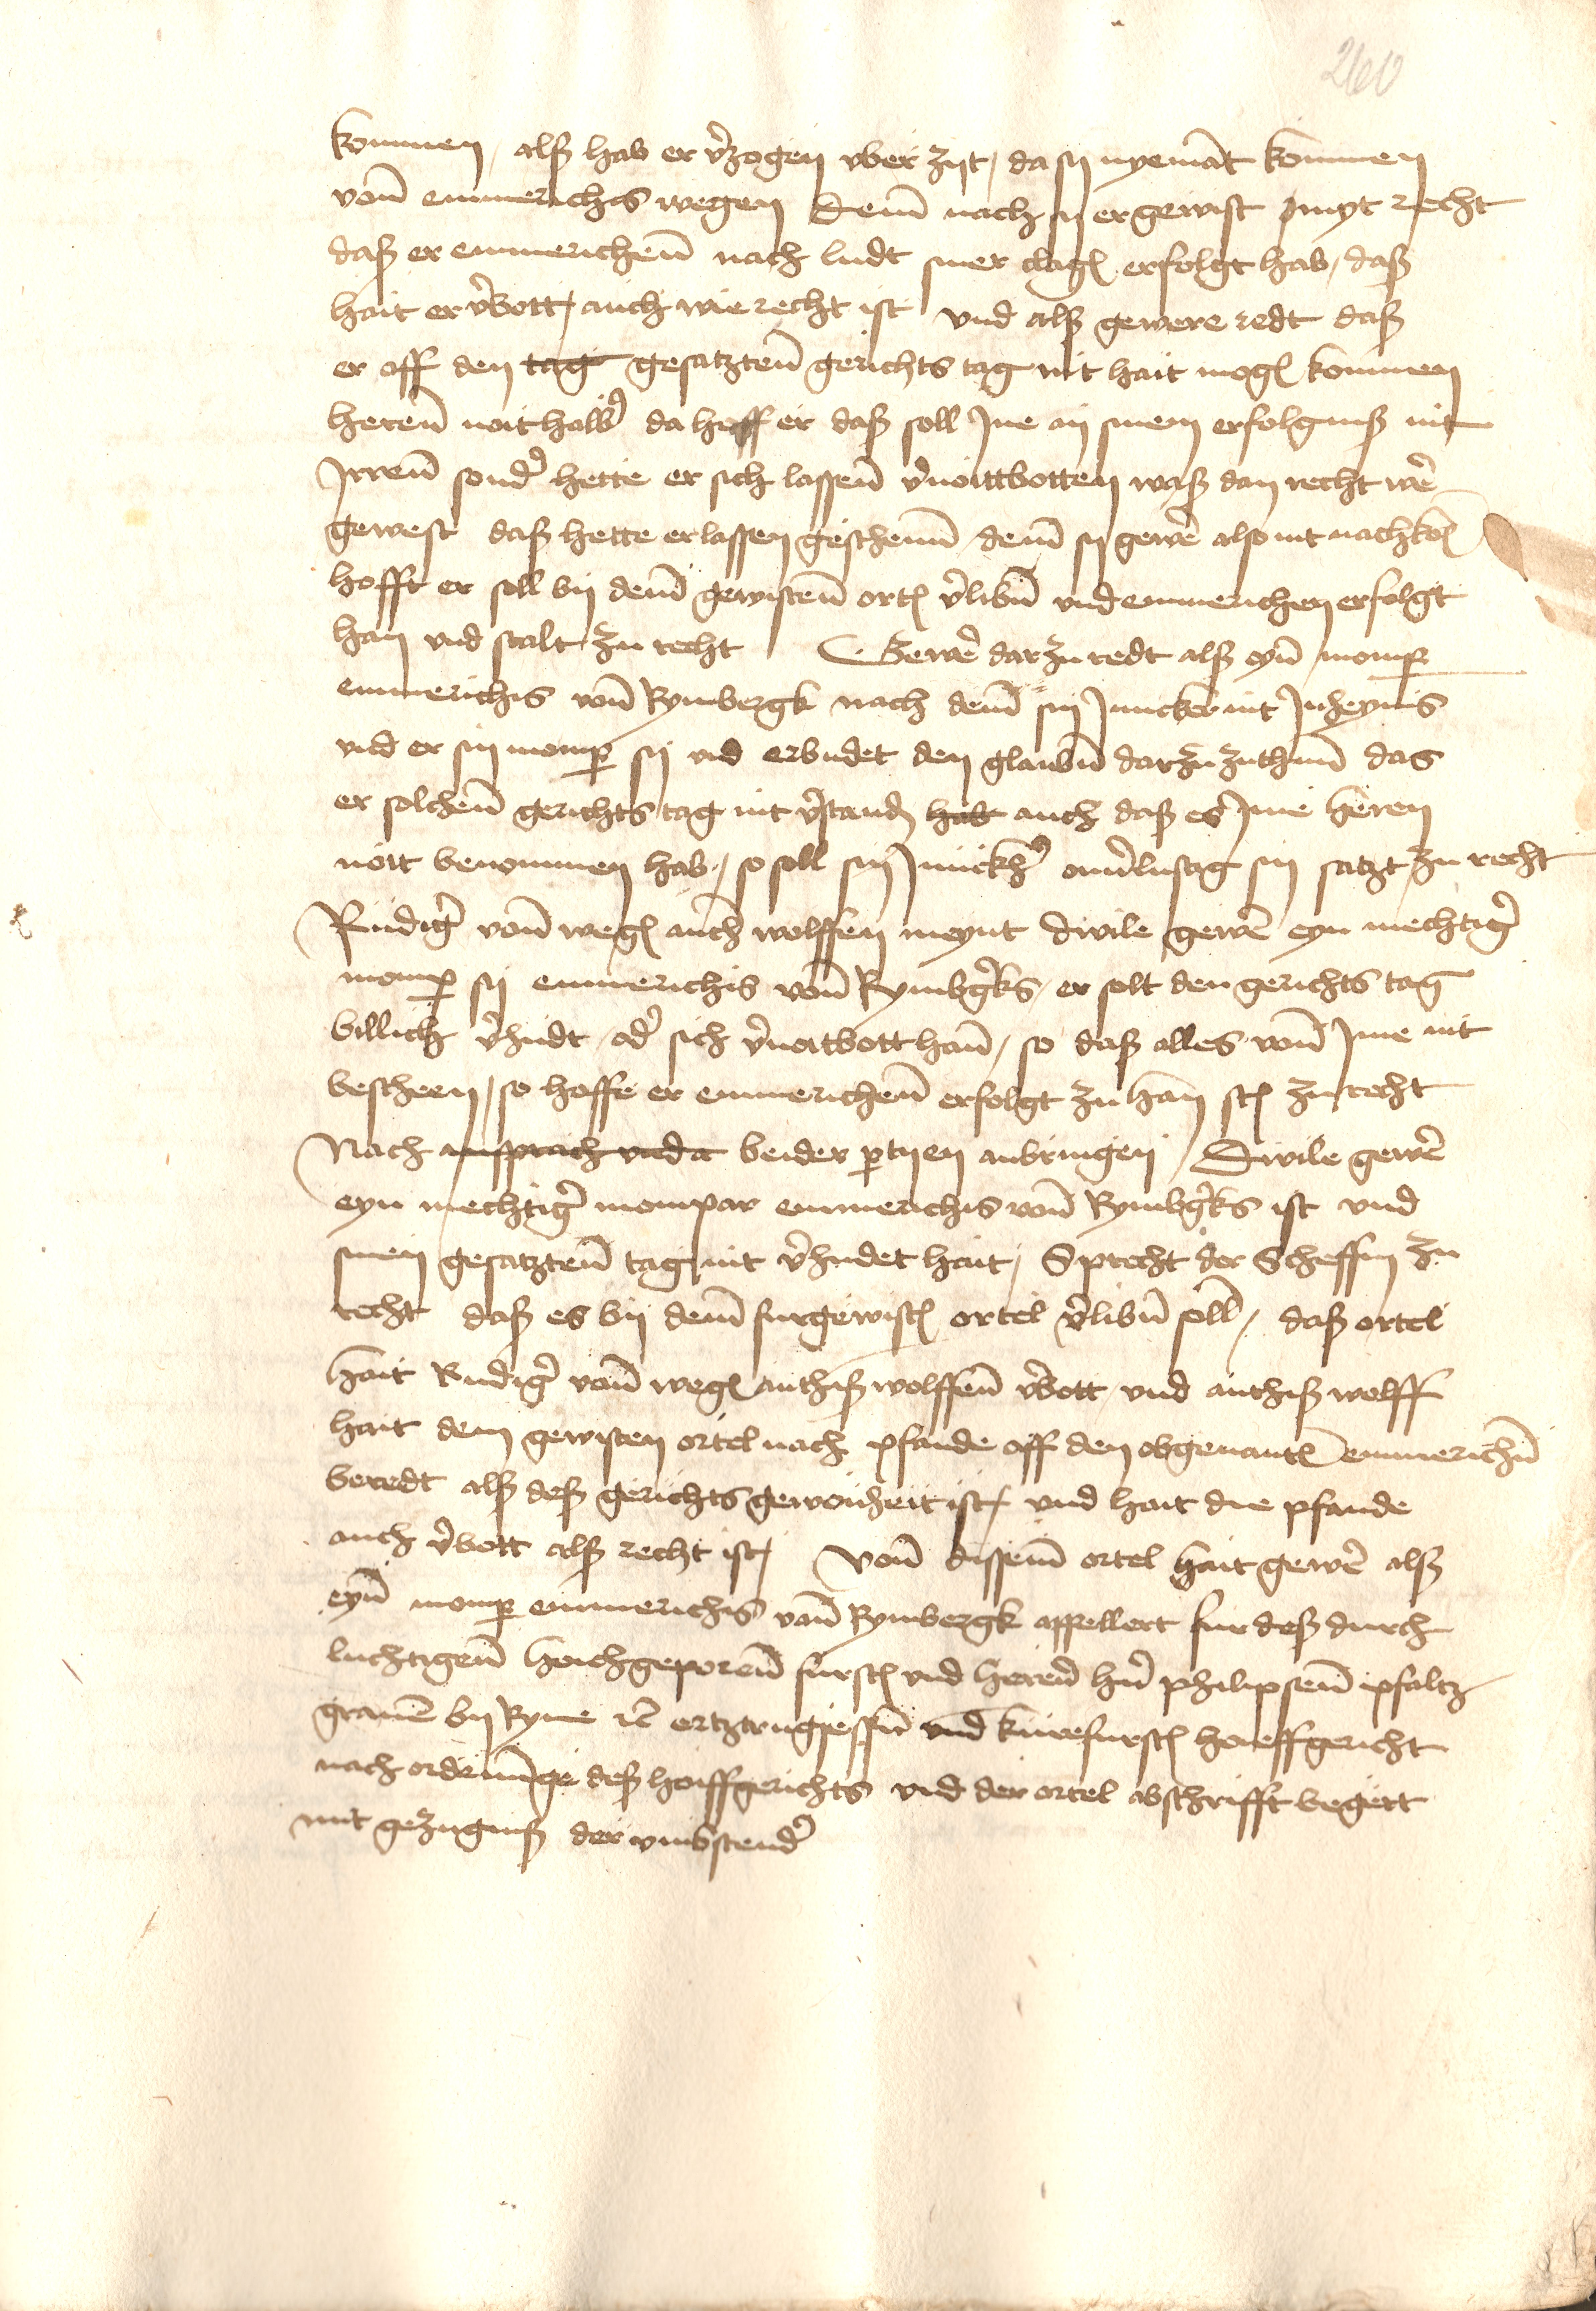 260
kommen, alß hab er v̉zogen vber zyt, da sy nyemãt kommen
von̄ emmerichs wegen Dem̄ nach sy er gewist myt recht
daß er emmerichen̄ nach ludt siner clag erfolgt hab, daß
hait er v̉bott, auch wie recht ist vnd alß gewere redt daß
er off den tag gesatzten̄ gerichts tag nit hait mog kommen
heren̄ noit halb̉ da hoff er daß soll Ine an sinem erfolgniß nit
Irren̄ sond̉ hette er sich lassen̄ v̉noittbotten waß dan recht wẽ
gewest daß hette er lassen gescheen̄ dem̄ sy gewẽ also nit nachkõ
hofft er soll by dem̄ gewisten̄ ort v̉libn̄ vnd emmerichen erfolgt
han vnd stalt zu recht Gewẽ dar zu redt alß eyn̄ momp
emmerichs von̄ Rymbergk nach dem̄ sin Juncker nit Inheymis
vnd er sin momp sy vnd erbudet den glaubn̄ dar zu zuthun̄ das
er solchen̄ gerichts tag nit v̉stand hab auch daß es Ime heren
nött benommen hab, so soll sin Junckh̉ onv̉lustig sin satzt zu recht
Rudig̉ von̄ weg anth wolffen meynt Dwile gewẽ eyn mechtig̉
momp sy emmerichs von̄ Rymbg̉ks, er solt den gerichts tag
billich v̉hudt od̉ sich v̉noitbott han̄, so daß alles von̄ Ime nit
bescheen, so hoffe er emmerichen̄ erfolgt zu han st zu recht
Nach ansprach vnd a beider ptyen anbringen Dwile gewẽ
eyn mechtig̉ mompar emmerichs von̄ Rymbg̉ks ist vnd
sinen gesatzten̄ tag nit v̉hudet hait, Spricht der Scheffin zu
recht daß es by dem̄ furgewist ortel v̉libn̄ soll, daß ortel
hait Rudig̉ von̄ weg anthiß wolffen̄ v̉bott vnd anthiß wolff
hait dem gewisten ortel nach pfande off den obgenant emmerichn̄
beredt alß deß gerichts gewonheit ist, vnd hait die pfande
auch v̉bott alß recht ist, Von̄ dissem̄ ortel hait gewẽ alß
eyn̄ momp emmerichs von̄ Rymbergk appellert fur deß durch
luchtigen̄ hochgeporen̄ furst vnd heren̄ hn̉ philipsen̄ pfaltz
grauẽ by Ryne rc̃ ertztrugsessen̄ vnd kurefurst houeffgericht
nach ordenunge deß hoiffgerichts vnd der ortel abschrifft begert
mit gezugniß der vmbstend̉